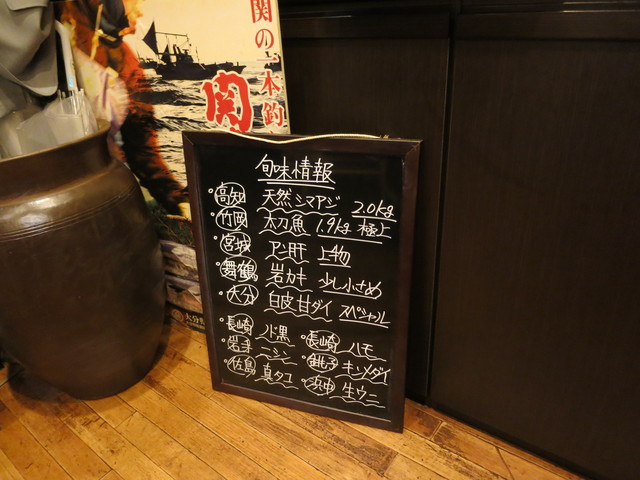 関の一本釣
関
旬味情報
・高知 天然シマアジ 2.0kg
・竹岡 太刀魚 1.9kg 極上
・宮城 アン肝 上物
・舞鶴 岩カキ 少し小さめ
・大分 白皮甘ダイ スペシャル
・長崎 ノド黒 ・長崎 ハモ
・岩手 ニシン ・銚子 キンメダイ
・佐島 真タコ ・浜中 生ウニ
大分